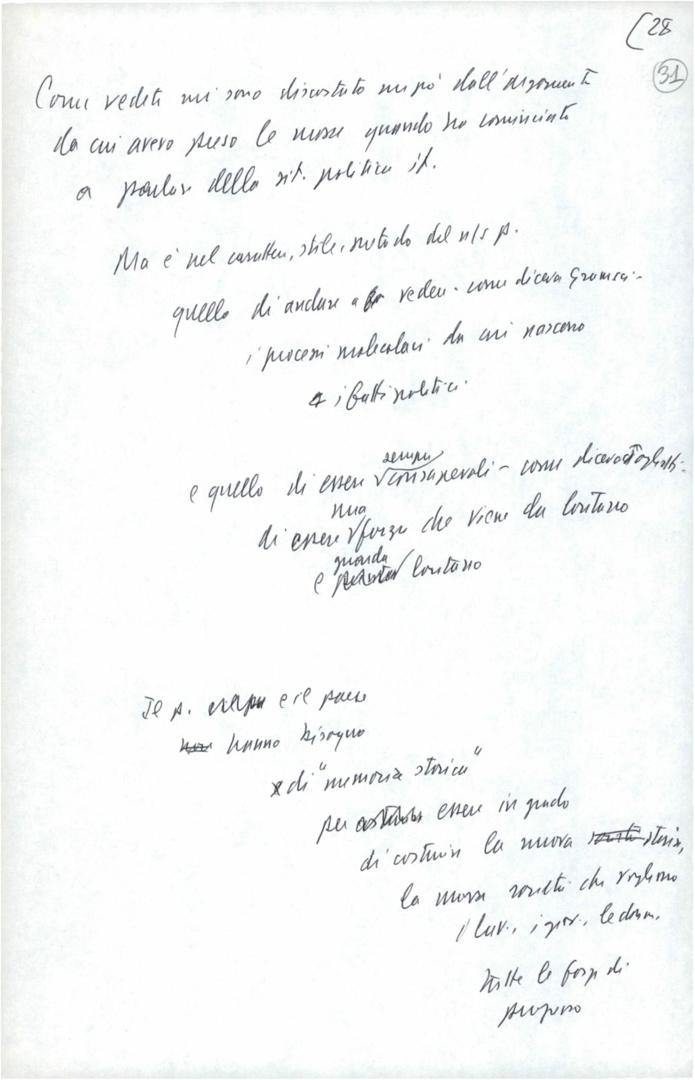 (28
31
Come vedete mi sono discostato un pò dall'argomento
da cui avevo preso le mosse quando ho cominciato
a parlar della sit. politica it.
Ma è nel carattere, stile, metodo del n/s p.
quello di andare a vedere - come diceva Gramsci -
i processi molecolari da cui nascono
i fatti politici.
e quello di essere sempre consapevoli - come diceva Togliatti -
di essere una forza che viene da lontano
e guarda lontano
Il p. e il paese
hanno bisogno
di "memoria storica"
per essere in grado
di costruire la nuova storia,
la nuova società che vogliono
i lav., i giov., le donne,
tutte le forze di
progresso